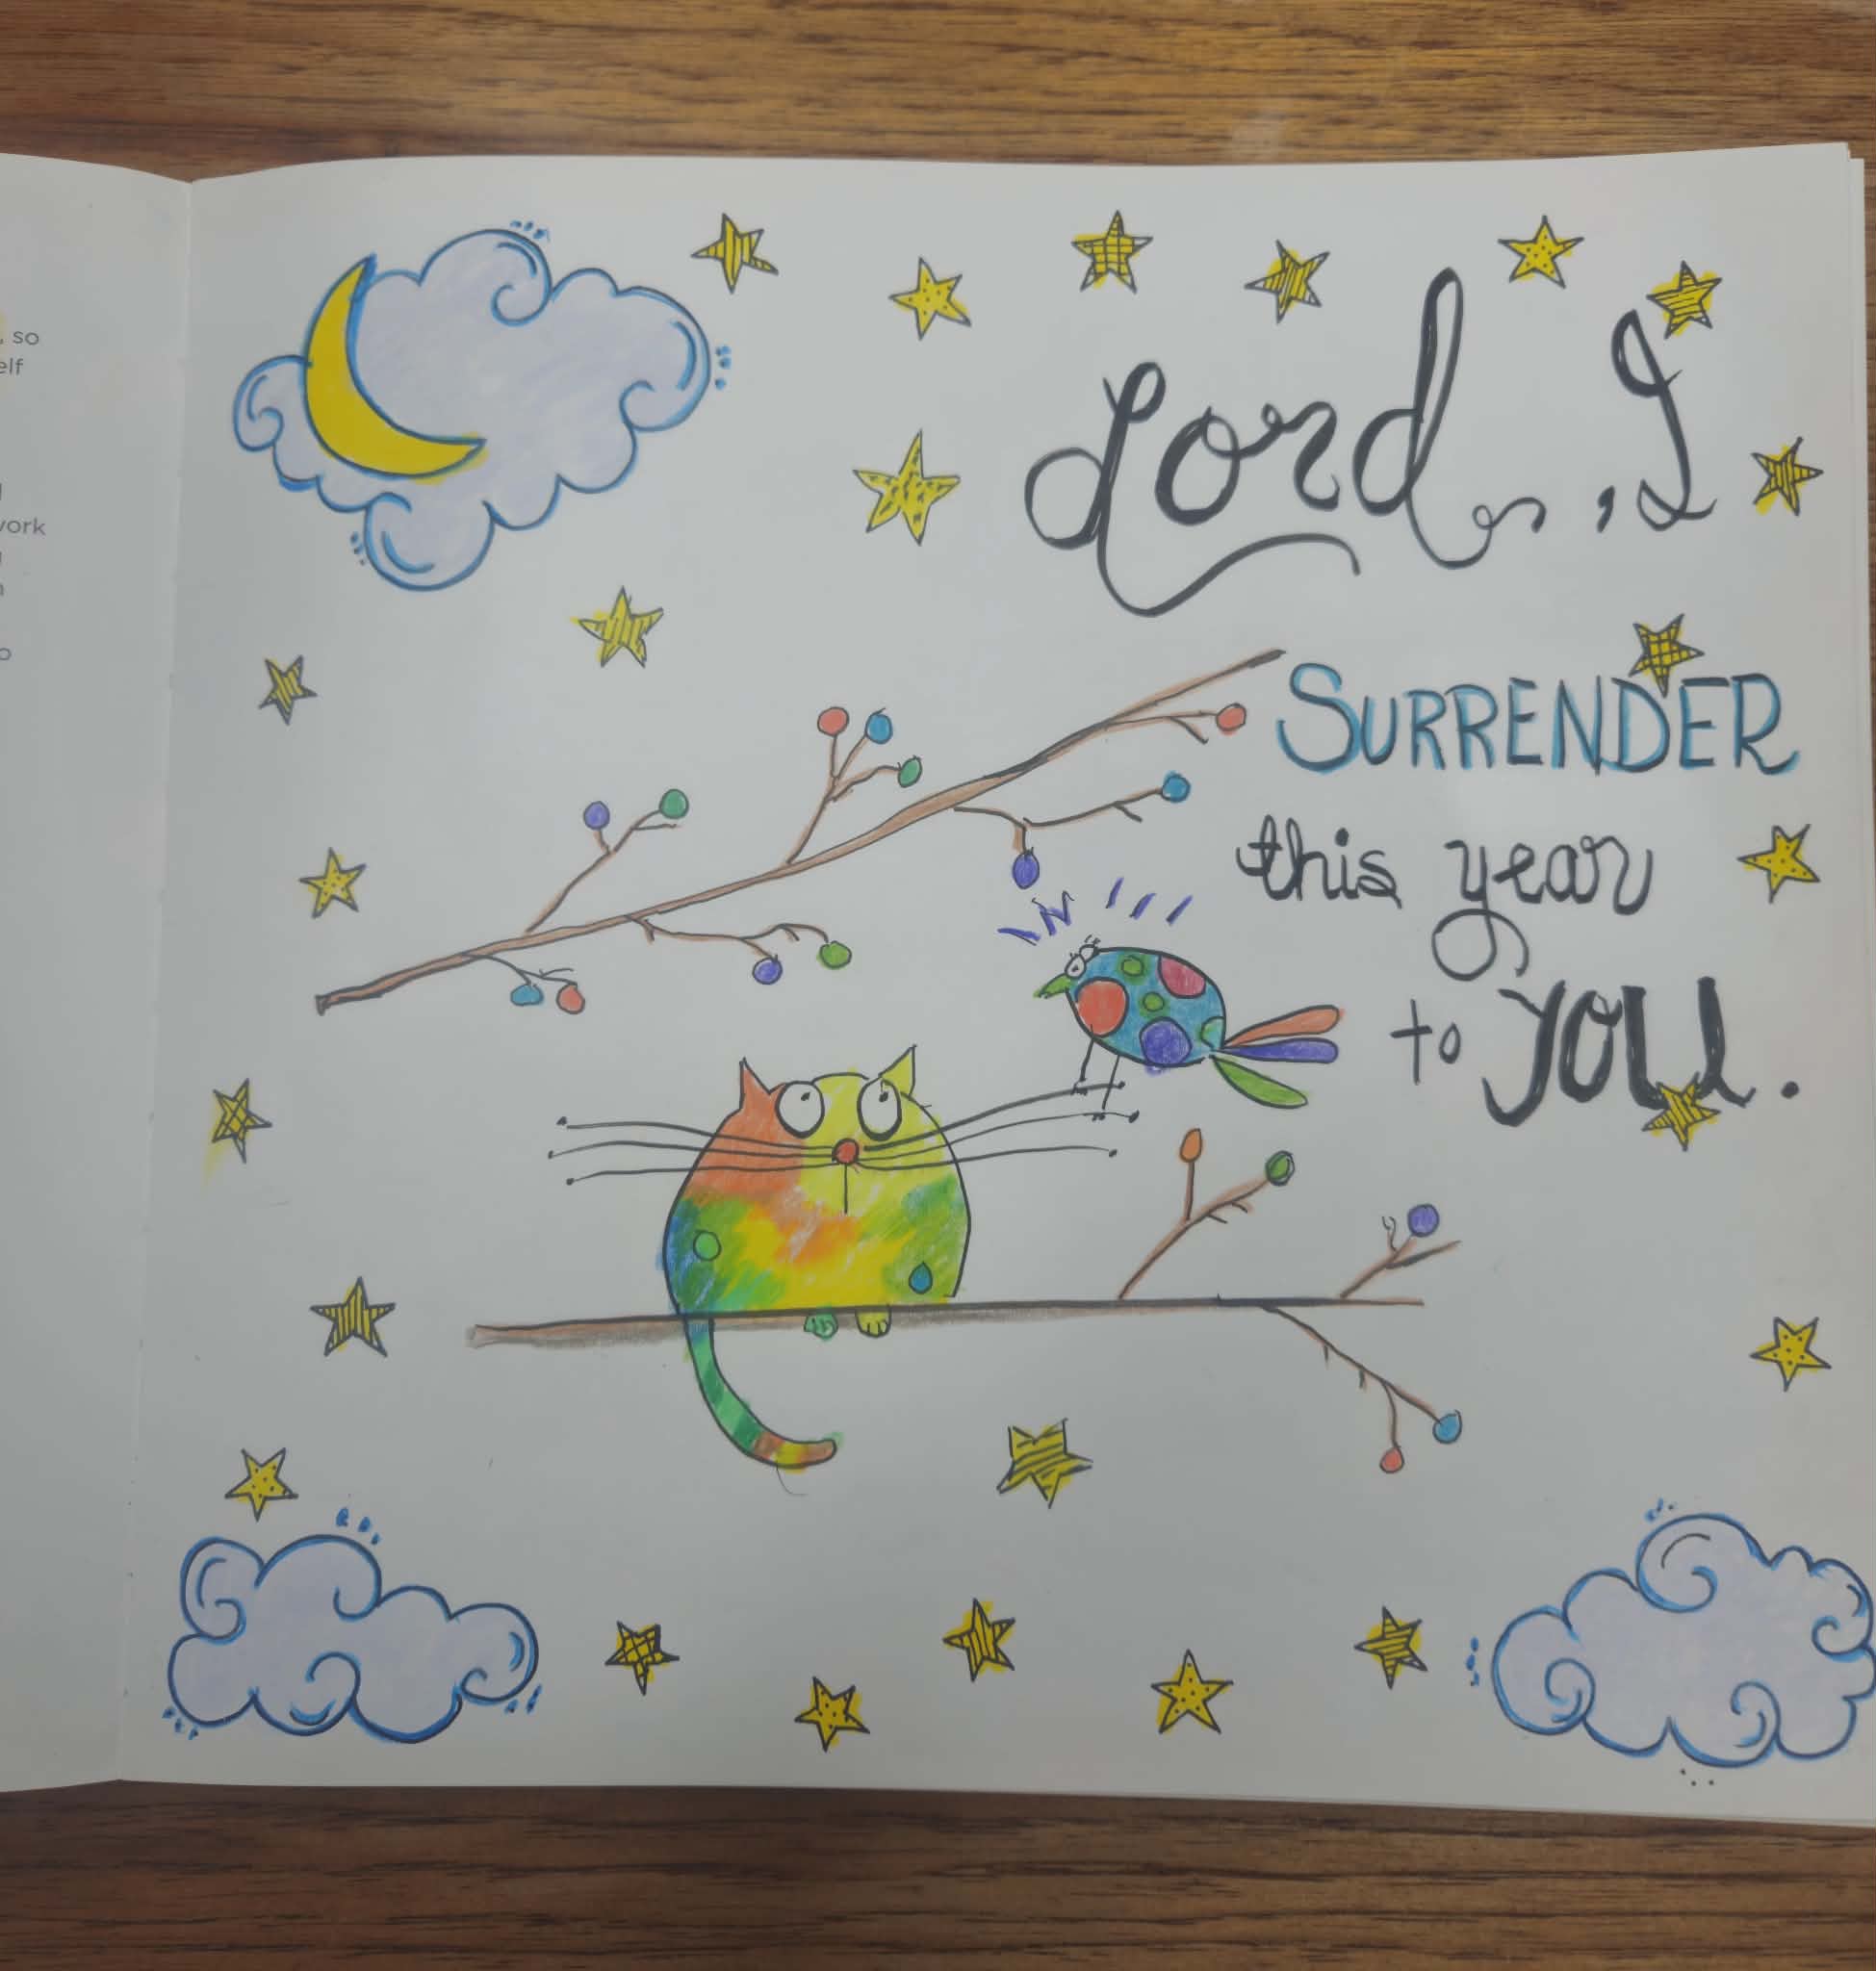 , so
elf
work
Lord, I
SURRENDER
this year
to YOU.